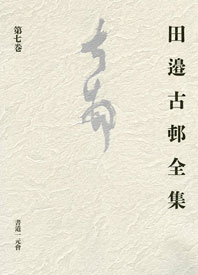 田邉古邨全集
第七巻
古邨
書道一元會